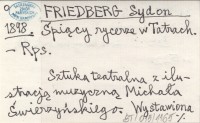 FRIEDBERG Sydon
1898. Śpiący rycerze w Tatrach.
- Rps.
Sztuka teatralna z ilu-
stracją muzyczną Michała
Świerzyńskiego. Wystawiona